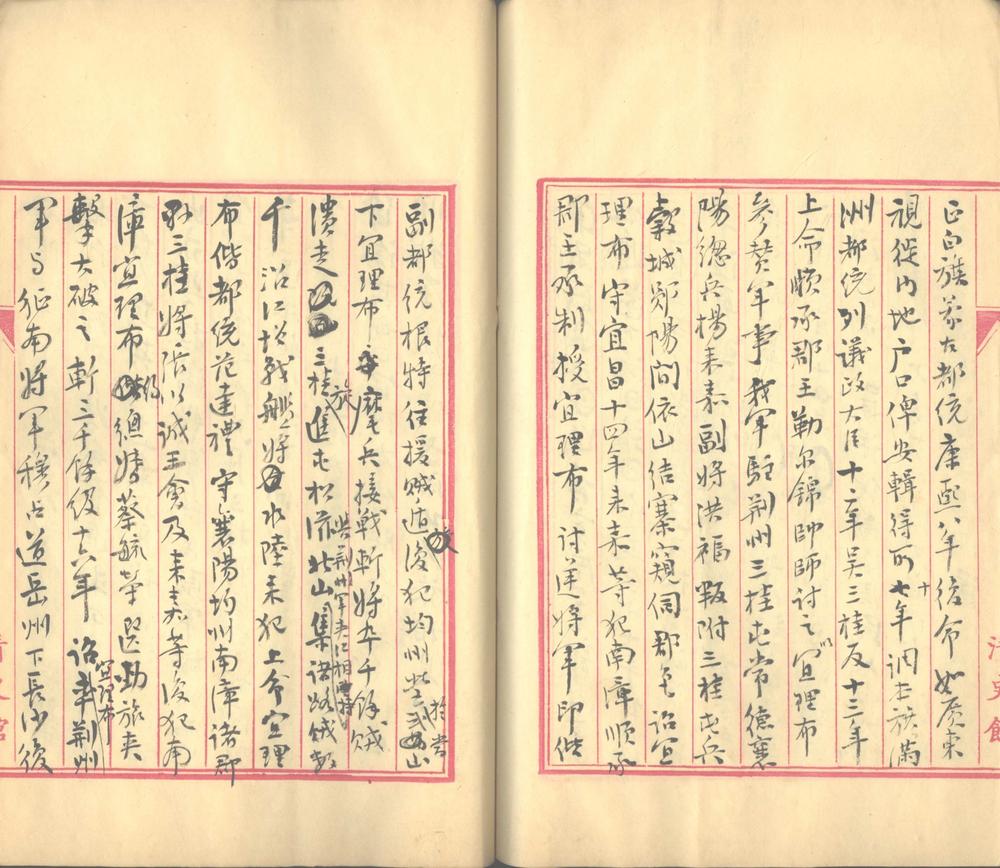 正白旗蒙古都統康熙八年復命如廣東
視徙內地戶口俾安輯得所十七年調本旗滿
洲都統列議政大臣十二年吳三桂反十三年
上命順承郡王勒爾錦帥師討之以宜理布
參贊軍事我軍駐荊州三桂屯常德襄
陽總兵楊來嘉副將洪福叛附三桂屯兵
穀城鄖陽間依山結寨窺伺郡邑詔宜
理布守宜昌十四年來嘉等犯南漳順承
郡王承制授宜理布討逆將軍印偕
副都統根特往援賊遁復犯均州營武當山
下宜理布麾兵接戰斬將卒千餘賊
潰走三桂旋進屯松滋北山與荊州軍夾江相拒集諸路賊數
千沿江增戰艦將水陸來犯上命宜理
布偕都統范達禮守襄陽均州南漳諸郡
縣三桂將張以誠王會及來嘉等復犯南
漳宜理布偕總督蔡毓榮選勁旅夾
擊大破之斬三千餘級十六年詔宜理布率荊州
軍與征南將軍穆占道岳州下長沙復
清史館